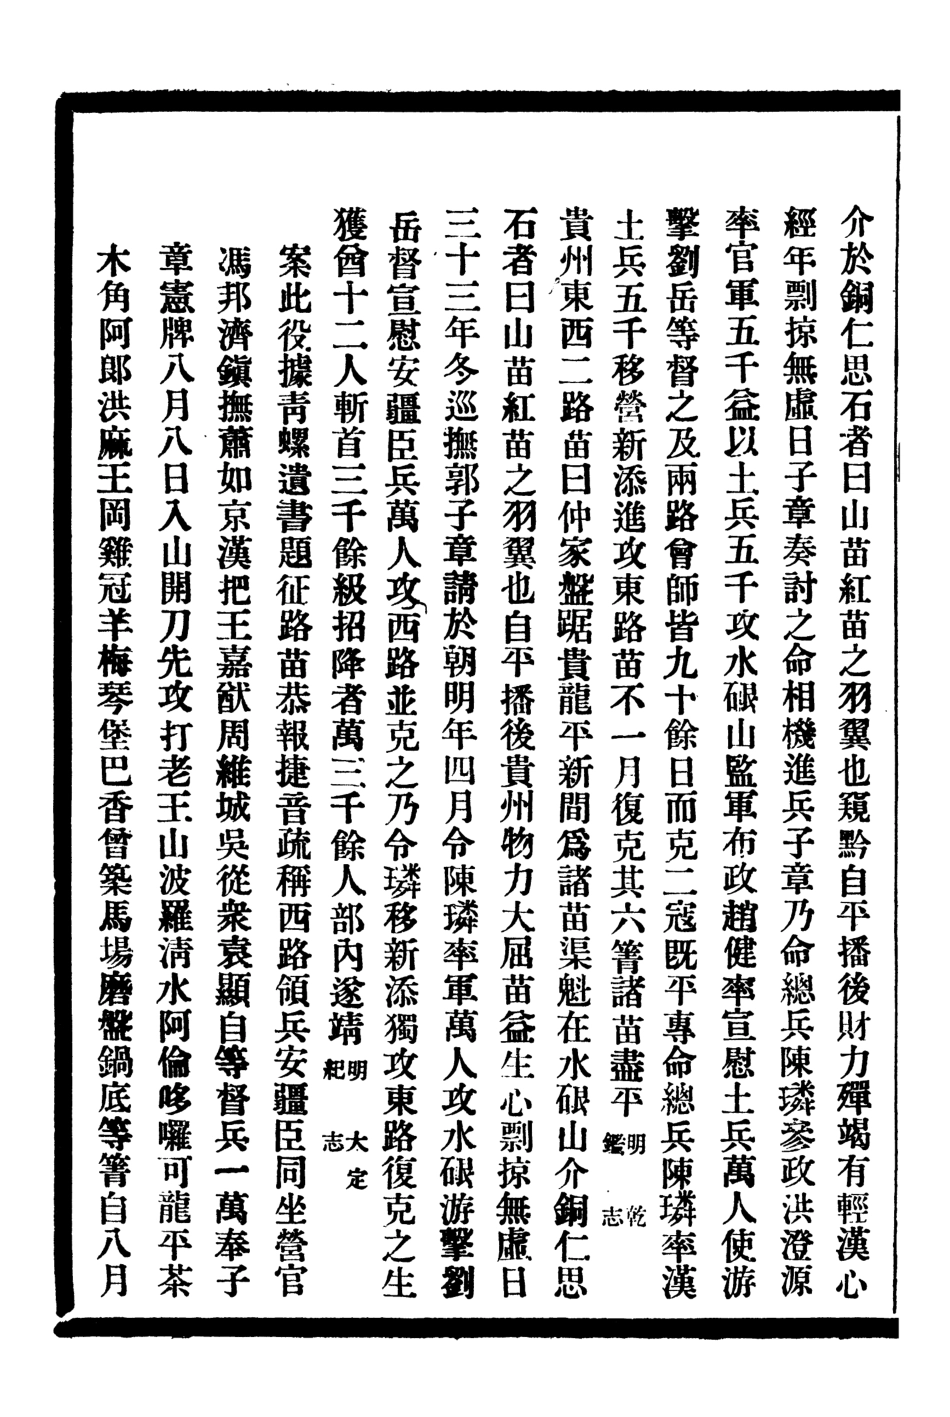 介於銅仁思石者曰山苗紅苗之羽翼也窺黔自平播後財力殫竭有輕漢心
經年剽掠無虛日子章奏討之命相機進兵子章乃命總兵陳璘參政洪澄源
率官軍五千益以土兵五千攻水硍山監軍布政趙健率宣慰土兵萬人使游
擊劉岳等督之及兩路會師皆九十餘日而克二寇既平專命總兵陳璘率漢
土兵五千移營新添進攻東路苗不一月復克其六箐諸苗盡平明鑑 乾志
貴州東西二路苗曰仲家盤踞貴龍平新間爲諸苗渠魁在水硍山介銅仁思
石者曰山苗紅苗之羽翼也自平播後貴州物力大屈苗益生心剽掠無虛日
三十三年冬巡撫郭子章請於朝明年四月令陳璘率軍萬人攻水硍游擊劉
岳督宣慰安疆臣兵萬人攻西路並克之乃令璘移新添獨攻東路復克之生
獲酋十二人斬首三千餘級招降者萬三千餘人部內遂靖明紀 大定志
案此役據靑螺遺書題征路苗恭報捷音疏稱西路領兵安疆臣同坐營官
馮邦濟鎭撫蕭如京漢把王嘉猷周維城吳從衆袁顯自等督兵一萬奉子
章憲牌八月八日入山開刀先攻打老王山波羅淸水阿倫哆囉可龍平茶
木角阿郞洪麻王岡雞冠羊梅琴堡巴香曾築馬場磨盤鍋底等箐自八月